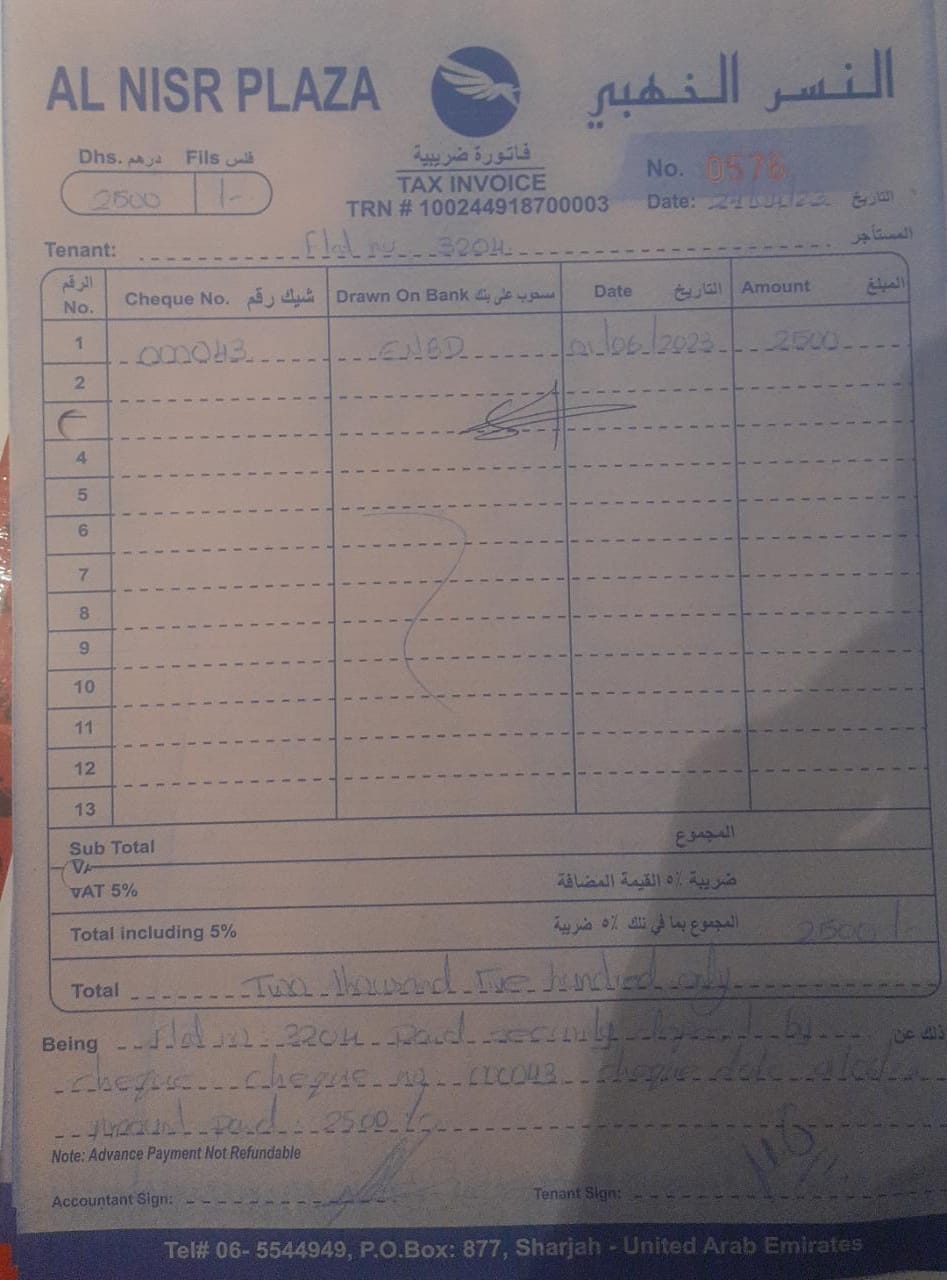 AL NISR PLAZA
النسر الذهبي
Dhs. درهم Fils فلس
2500 /-
فاتورة ضريبية
TAX INVOICE
TRN # 100244918700003
No. 0576
Date: التاريخ
Tenant: Flat no. 3204 المستأجر
الرقم No. Cheque No. شيك رقم Drawn On Bank مسحوب على بنك Date التاريخ Amount المبلغ
1 000043 ENBD 01/06/2023 2500
2
4
5
6
7
8
9
10
11
12
13
Sub Total المجموع
VAT 5% ضريبة ٥٪ القيمة المضافة
Total including 5% المجموع بما في ذلك ٥٪ ضريبة 2500/-
Total Two thousand Five hundred only
Being Flat no 3204 Paid security deposit by وذلك عن
cheque cheque no 000043 cheque date
Amount Paid: 2500/-
Note: Advance Payment Not Refundable
Accountant Sign: Tenant Sign:
Tel# 06- 5544949, P.O.Box: 877, Sharjah - United Arab Emirates